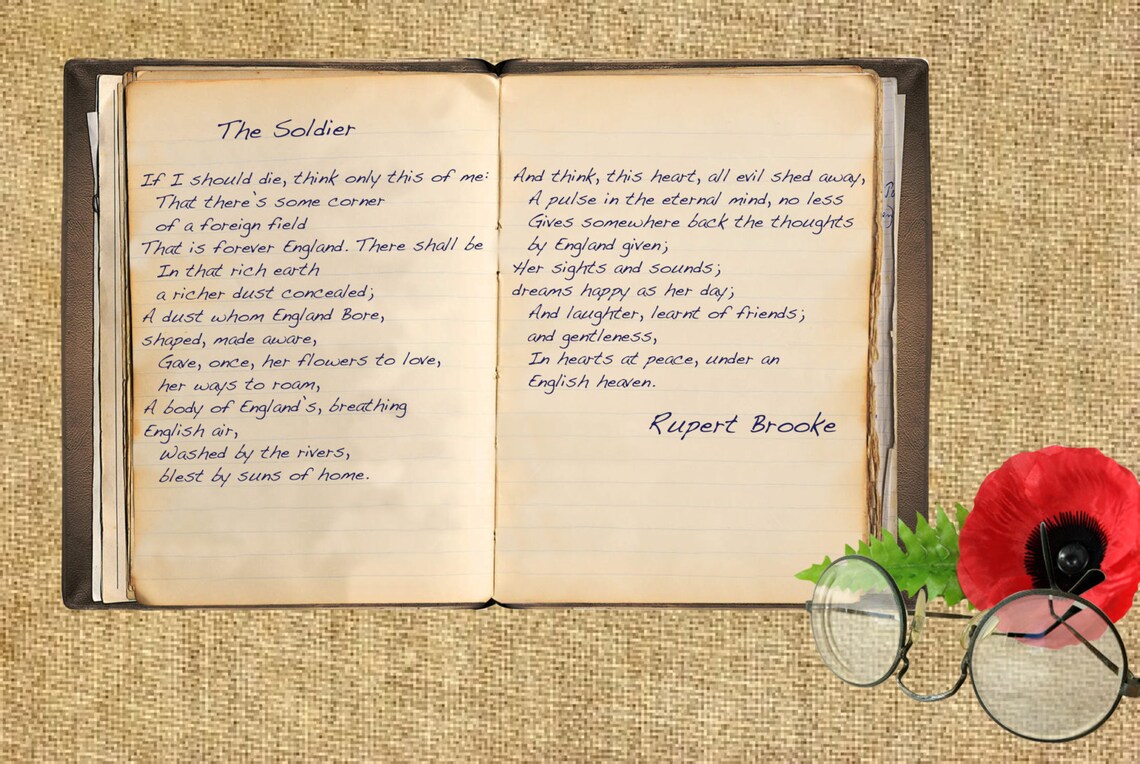 The Soldier
If I should die, think only this of me:
That there`s some corner
of a foreign field
That is forever England. There shall be
In that rich earth
a richer dust concealed;
A dust whom England Bore,
shaped, made aware,
Gave, once, her flowers to love,
her ways to roam,
A body of England`s, breathing
English air,
Washed by the rivers,
blest by suns of home.
And think, this heart, all evil shed away,
A pulse in the eternal mind, no less
Gives somewhere back the thoughts
by England given;
Her sights and sounds;
dreams happy as her day;
And laughter, learnt of friends;
and gentleness,
In hearts at peace, under an
English heaven.
Rupert Brooke